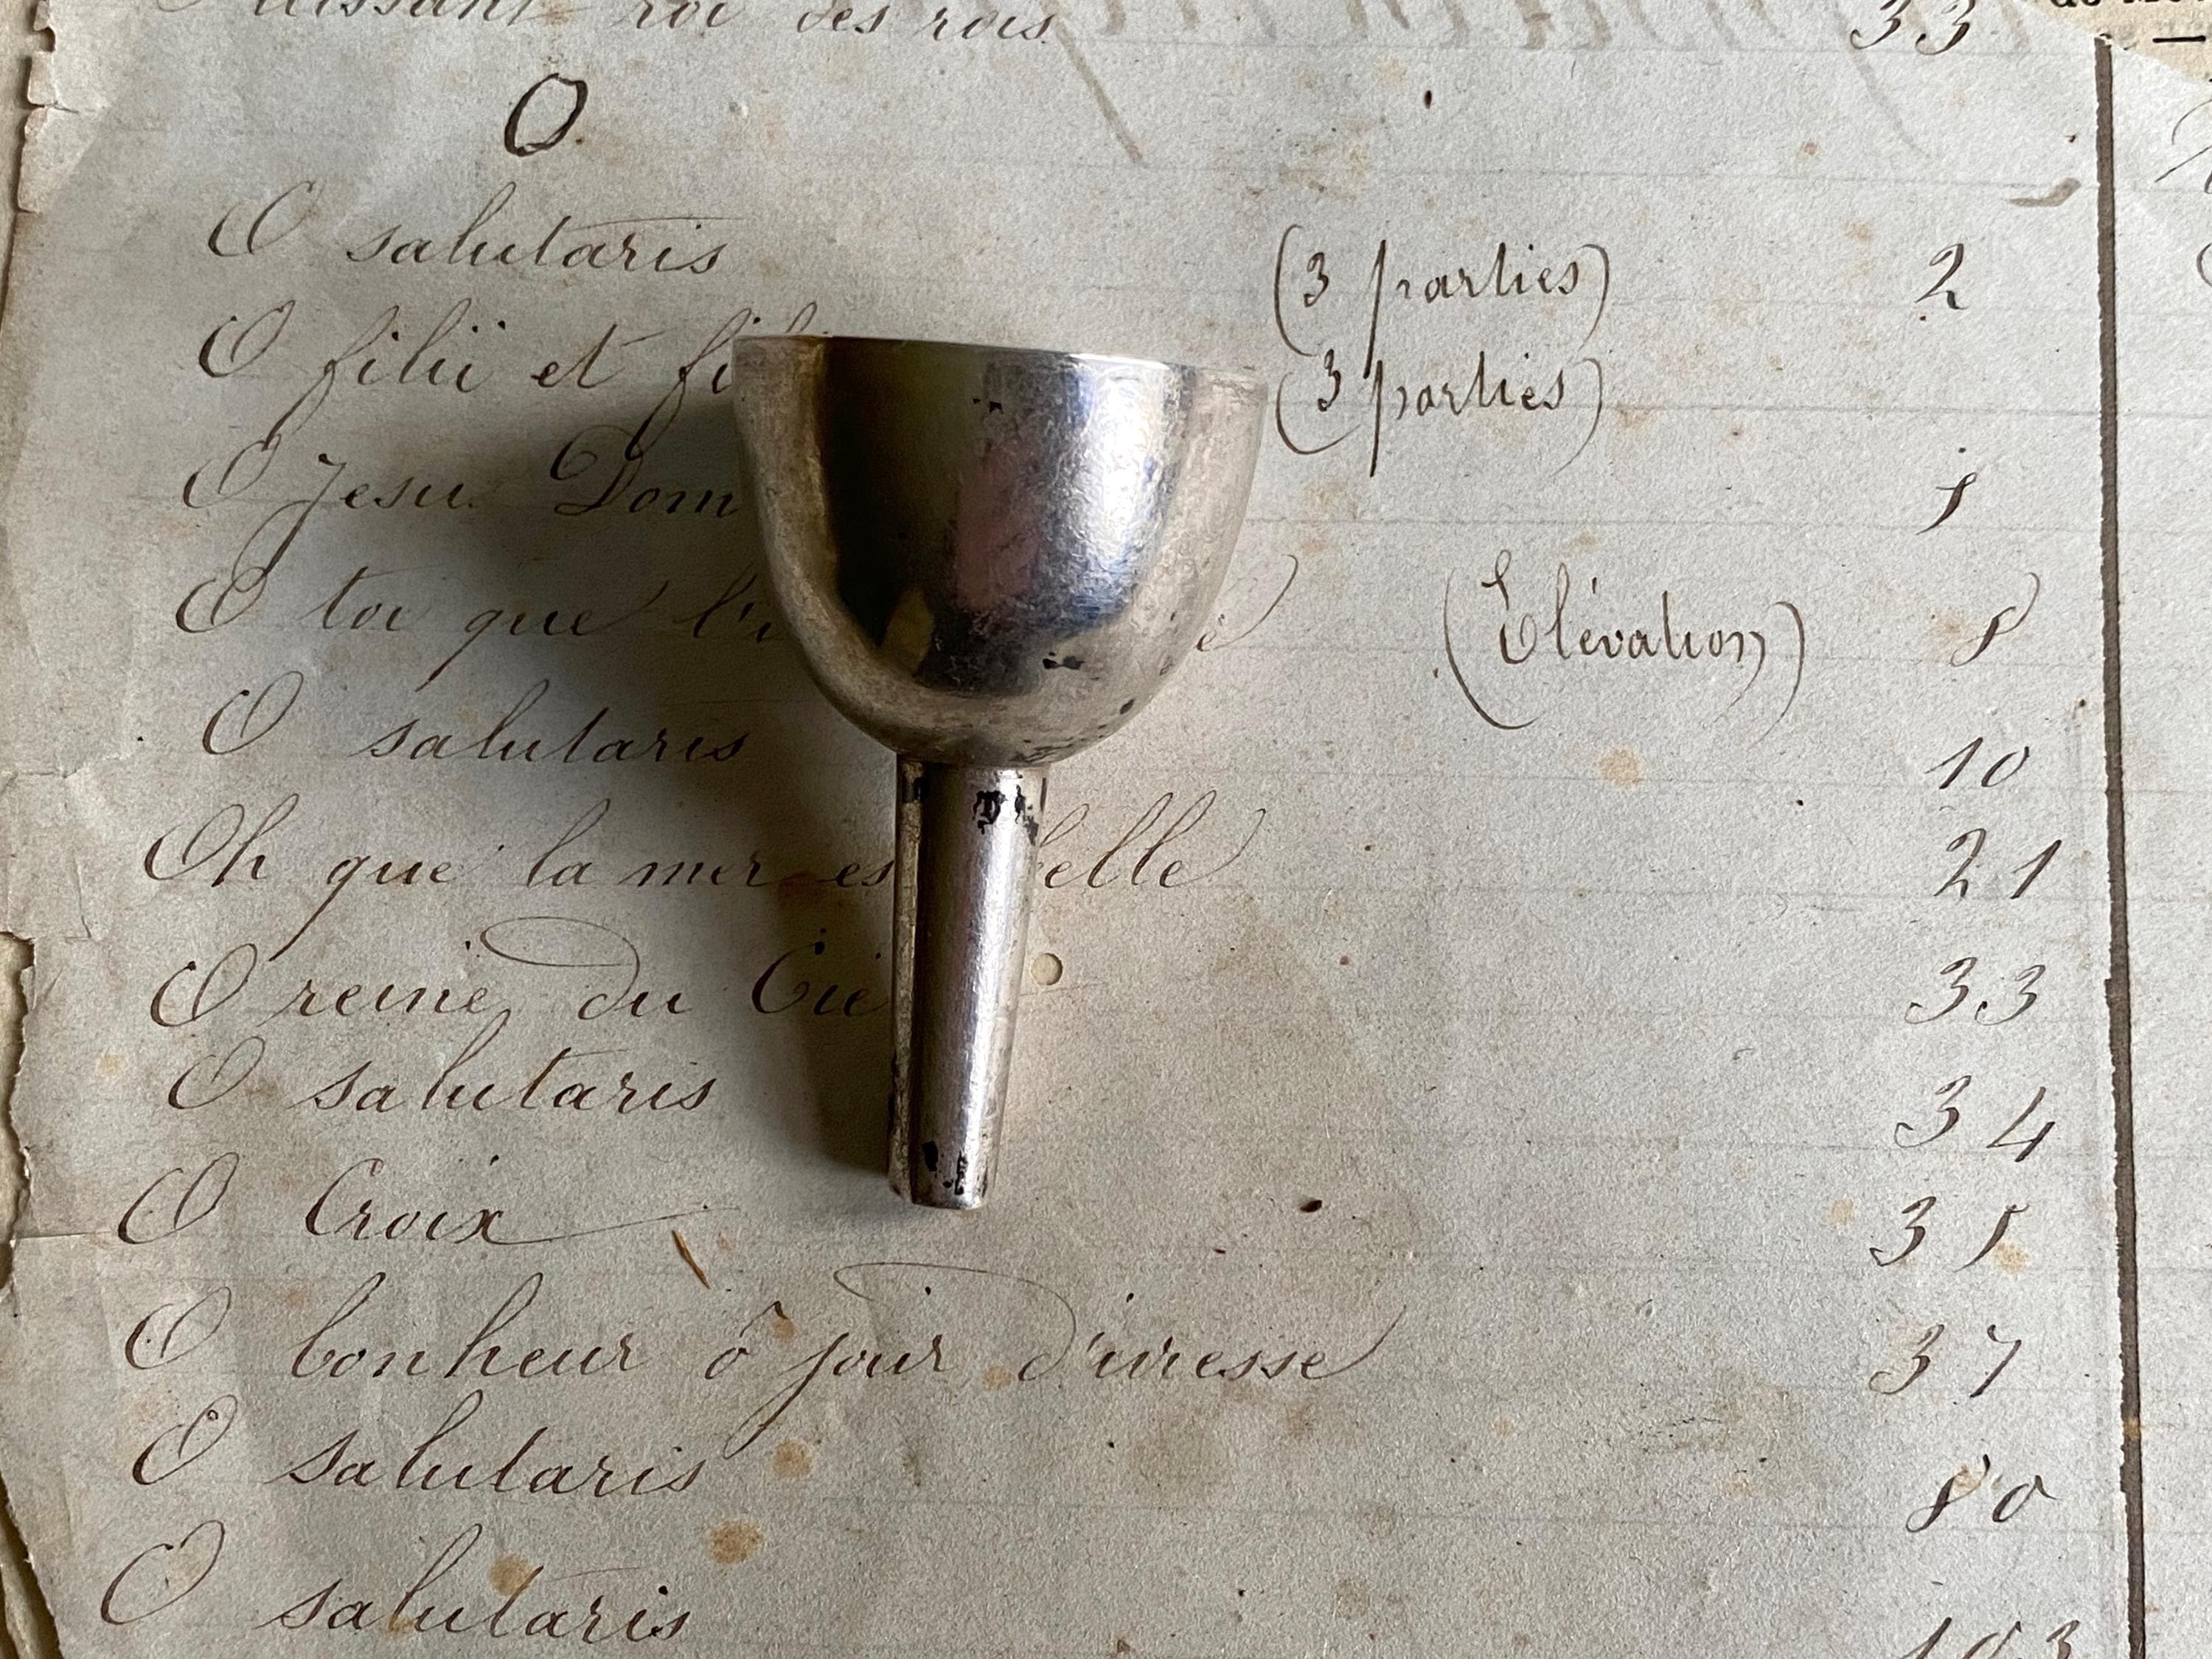 roi des rois 33
O
O salutaris (3 parties) 2
O filii et fi (3 parties)
O Jesu Dom 5
O toi que l'i (Elévation) 8
O salutaris 10
Oh que la mer es belle 21
O reine du Cie 33
O salutaris 34
O Croix 35
O bonheur ô jour d'ivresse 37
O salutaris 80
O salutaris 103